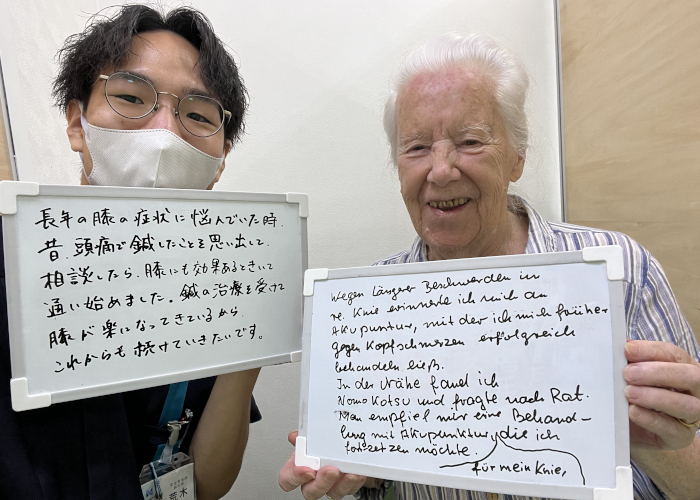 長年の膝の症状に悩んでいた時、
昔、頭痛で鍼したことを思い出して、
相談したら、膝にも効果あるときいて
通い始めました。鍼の治療を受けて
膝が楽になってきているから、
これからも続けていきたいです。
Wegen längerer Beschwerden im
re. Knie erinnerte ich mich an
Akupuntur, mit der ich mich früher
gegen Kopfschmerzen erfolgreich
behandeln ließ.
In der Nähe fand ich
Nomo Kotsu und fragte nach Rat.
Man empfiel mir eine Behand-
lung mit Akupunktur, die ich
fortzetzen möchte.
für mein Knie,
荒木